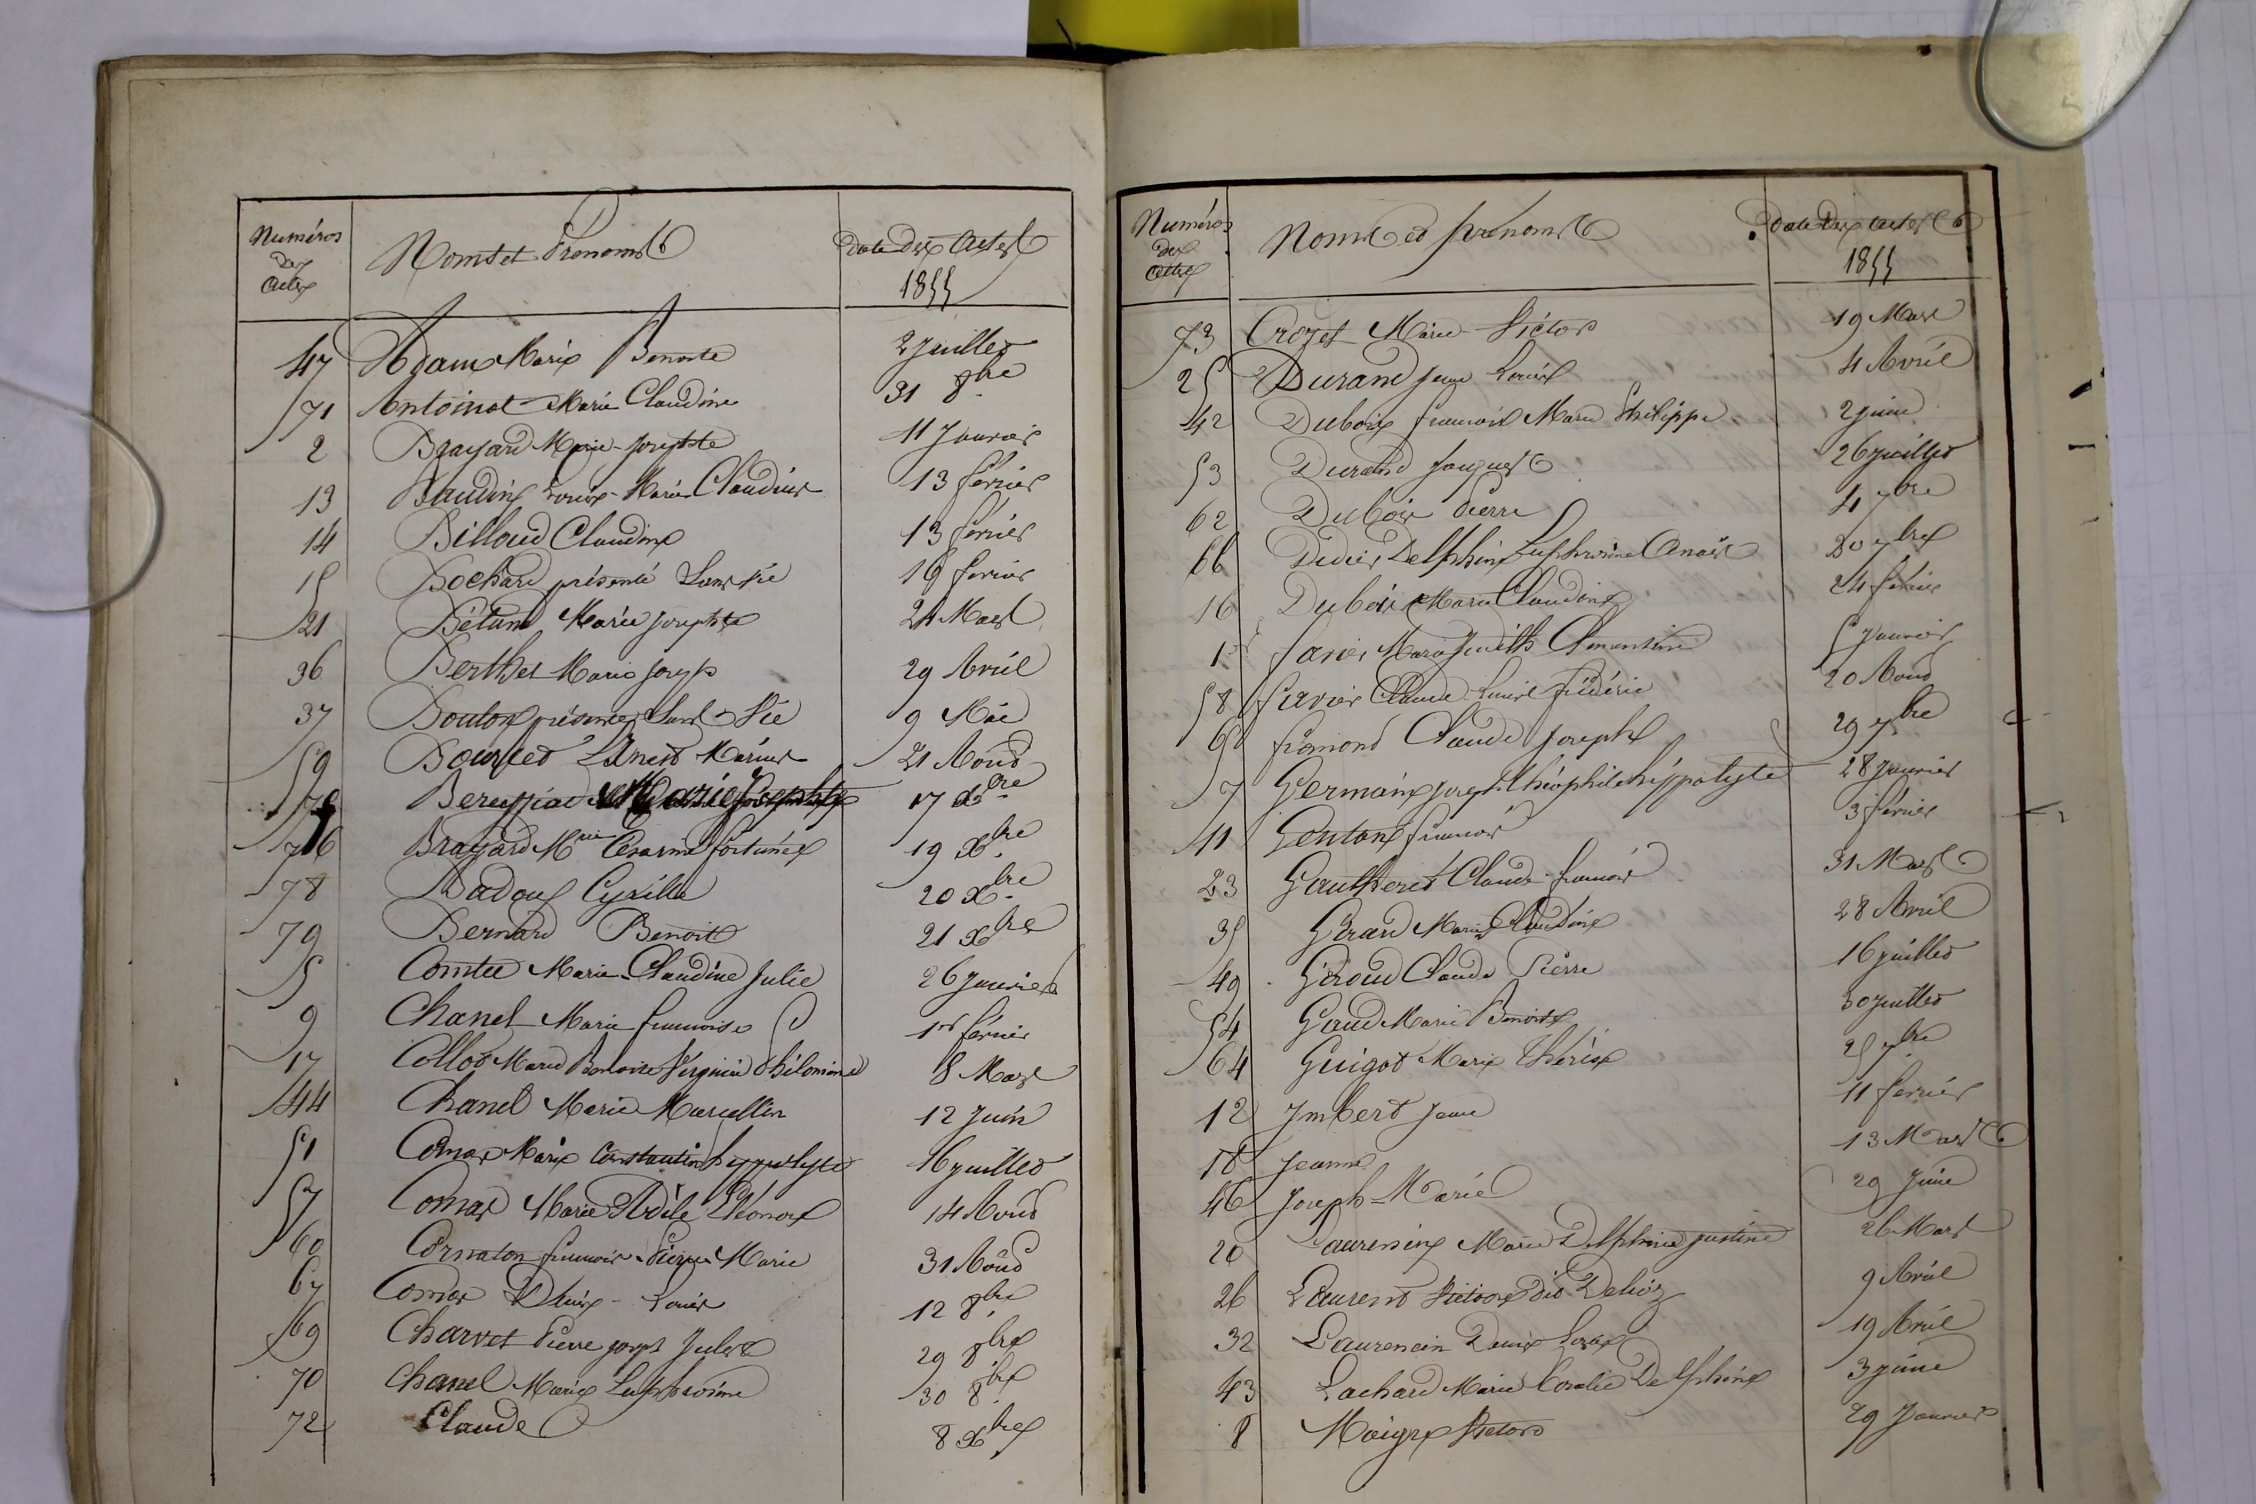 Numéros
des
actes
Noms et Prénoms
Date des Actes
1855
47 Adam Marie Benoite 2 Juillet
71 Antoinat Marie Claudine 31 8bre
2 Brayard Marie-Josephte 11 Janvier
13 Baudin Louise-Marie Claudine 13 février
14 Billoud Claudine 13 février
15 Bochard présenté sans vie 16 février
21 Bétend Marie Josephte 24 Mars
36 Berthet Marie Joseph 29 Avril
37 Bouton présenté sans-vie 9 Mai
59 Bourcet Ernest Marius 21 Aout
75 Bereyziat Marie Josephte 17 Xbre
76 Brayard Mie Césarine fortunée 19 Xbre
78 Badoux Cyrille 20 Xbre
79 Bernard Benoit 21 Xbre
5 Comtet Marie-Claudine Julie 26 Janvier
9 Chanel Marie francoise 1er février
17 Collot Marie Benoite Virginie Philomène 8 Mars
44 Chanel Marie Marcellin 12 Juin
51 Comas Marie Constantin hyppolyte 16 juillet
57 Comas Marie Adèle Eléonore 14 Aout
60 Cornaton francois-Pierre Marie 31 Aout
67 Comas Denis-Louis 12 8bre
69 Charvet Pierre joseph Jules 29 8bre
70 Chanel Marie Euphrosine 30 8bre
72 Claude 8 Xbre
Numéros
des
actes
Noms et prénoms
Date des actes
1855
73 Crozet Marie-Victor 19 Mars
25 Durand Jean Louis 4 Avril
42 Dubois francois Marie Philippe 2 juin
53 Durand Jacques 26 juillet
62 Dubois Pierre 4 7bre
66 Didier Delphine Euphrosine Anaïs 30 7bre
16 Dubois Marie Claudine 24 février
1er favier Marie Judith Clémentine 5 Janvier
58 favier Claude Louise frédéric 20 Aout
65 fromont Claude Joseph 29 7bre
7 Germain joseph théophile hippolyte 28 Janvier
11 Genton francois 3 février
23 Gautheret Claude-francois 31 Mars
35 Gérard Marie Claudine 28 Avril
49 Giroud Claude Pierre 16 juillet
54 Gaud Marie Benoite 30 juillet
64 Guigot Marie Thérèse 25 7bre
12 Imbert Jean 11 février
18 Jeanne 13 Mars
46 Joseph-Marie 29 Juin
20 Laurencin Marie Delphine justine 26 Mars
26 Laurent Victoire dit Deliez 9 Avril
32 Laurencin Denis 19 Avril
43 Lachard Marie Coralie Delphine 3 juin
8 Maigre Victor 29 Janvier